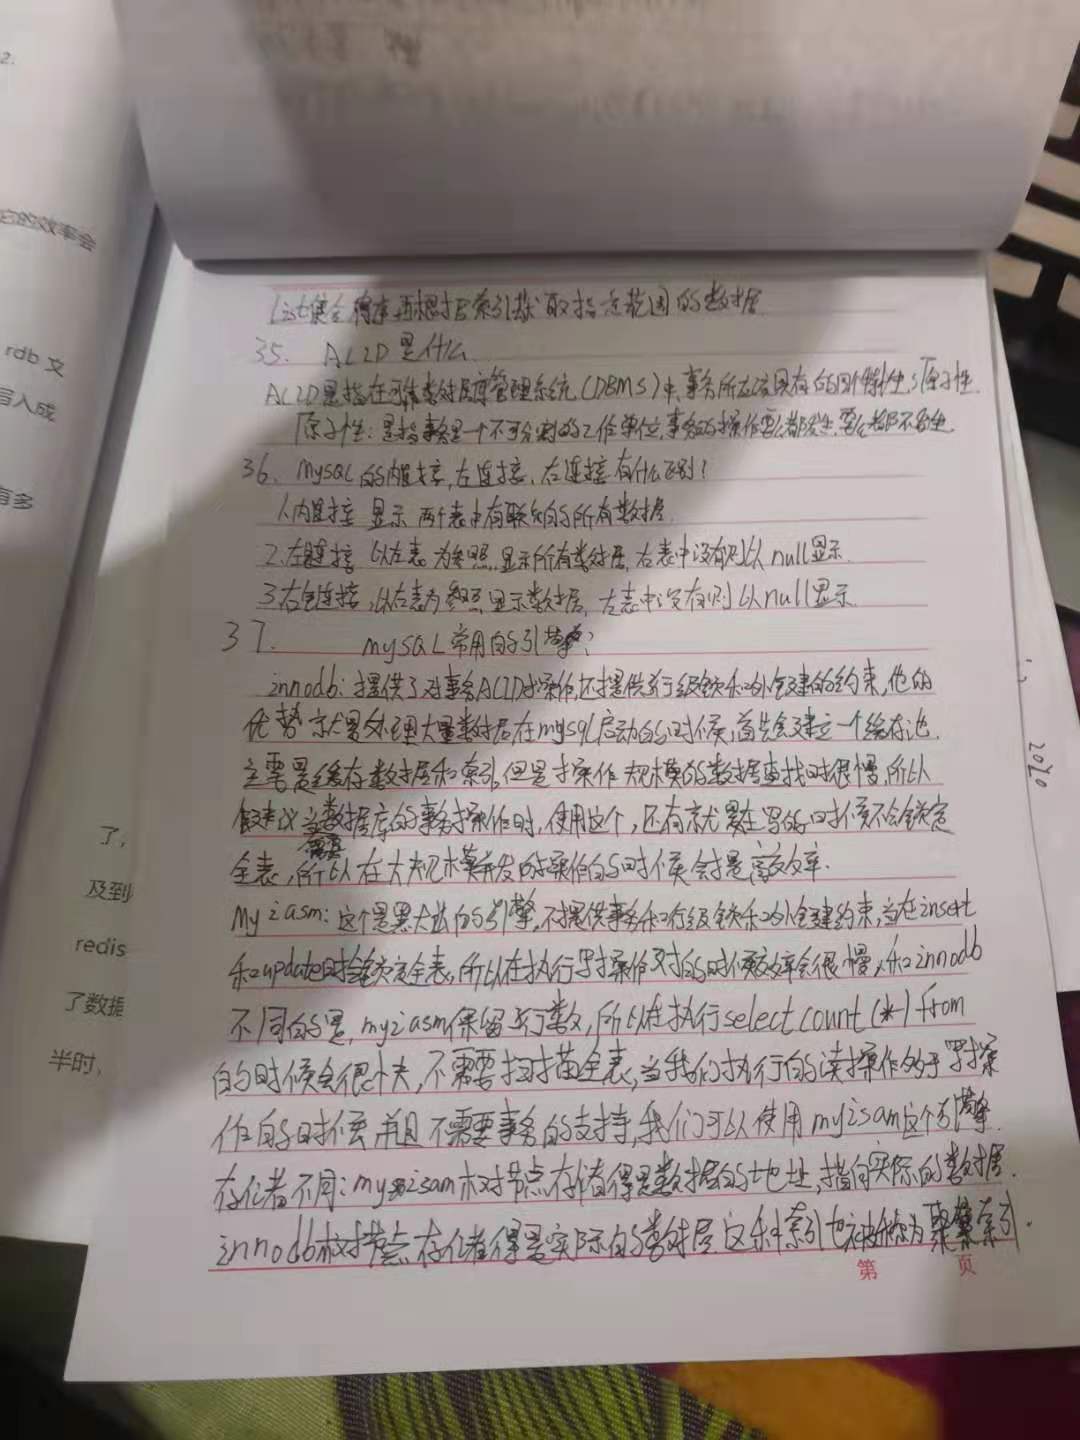 2.
它的效率会
rdb 文
写入成
有多
了,
及到
redis
了数据
半时,
2020
list集合 排序再根据索引获取指定范围的数据
35. ACID是什么
ACID是指在可靠数据库管理系统(DBMS)中,事务所应该具有的四个特性:原子性.
原子性:是指事务是一个不可分割的工作单位,事务的操作要么都发生,要么都不发生.
36. mysql的内连接,左连接,右连接有什么区别?
1.内连接 显示两个表中有联系的所有数据.
2.左链接 以左表为参照,显示所有数据,右表中没有则以null显示.
3.右链连接,以右表为参照显示数据,左表中没有则以null显示.
37. mysql常用的引擎?
innodb:提供了对事务ACID操作,还提供了行级锁和外键的约束,他的
优势就是处理大量数据在mysql启动的时候,首先会建立一个缓存池.
主需是缓存数据和索引,但是操作规模的数据查找时很慢,所以
建议当数据库的事务操作时,使用这个,还有就是在写的时候不会锁定
全表,所以在大规模并发的操作的时候会提高效率.
Myiasm:这个是默认的引擎,不提供事务和行级锁和外键约束,当在insert
和update时会锁定全表,所以在执行写操作的时候效率会很慢,和innodb
不同的是,myiasm保留了行数,所以在执行select count(*) from
的时候会很快,不需要扫描全表,当我们执行的读操作多于写操
作的时候,并且不需要事务的支持,我们可以使用myisam这个引擎.
存储不同:myisam树节点存储得是数据的地址,指向实际的数据.
innodb树节点存储得是实际的数据 这种索引也被称为聚集索引.
第 页